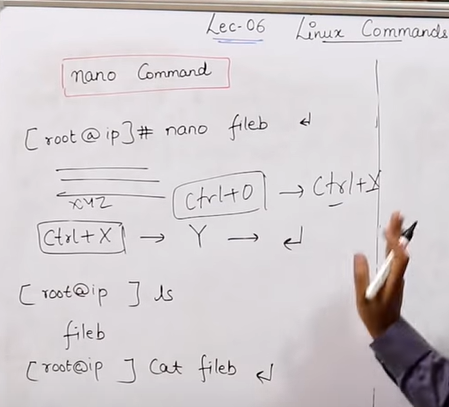 Lec-06 Linux Commands
nano Command
[root@ip]# nano fileb ↵
xyz
Ctrl+O → Ctrl+X
Ctrl+X → Y → ↵
[root@ip ] ls
fileb
[root@ip ] Cat fileb ↵